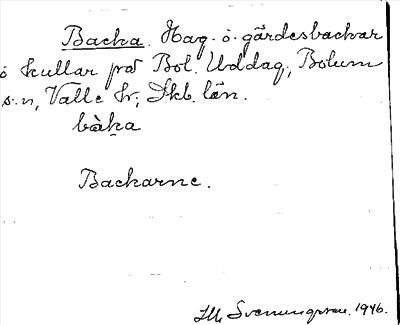 Backa. Hag- o. gärdesbackar
o kullar på Bol. Uddag, Bolum
s:n, Valle hr; Skb. län.
bàka
Backarne.
Svenungsson. 1946.